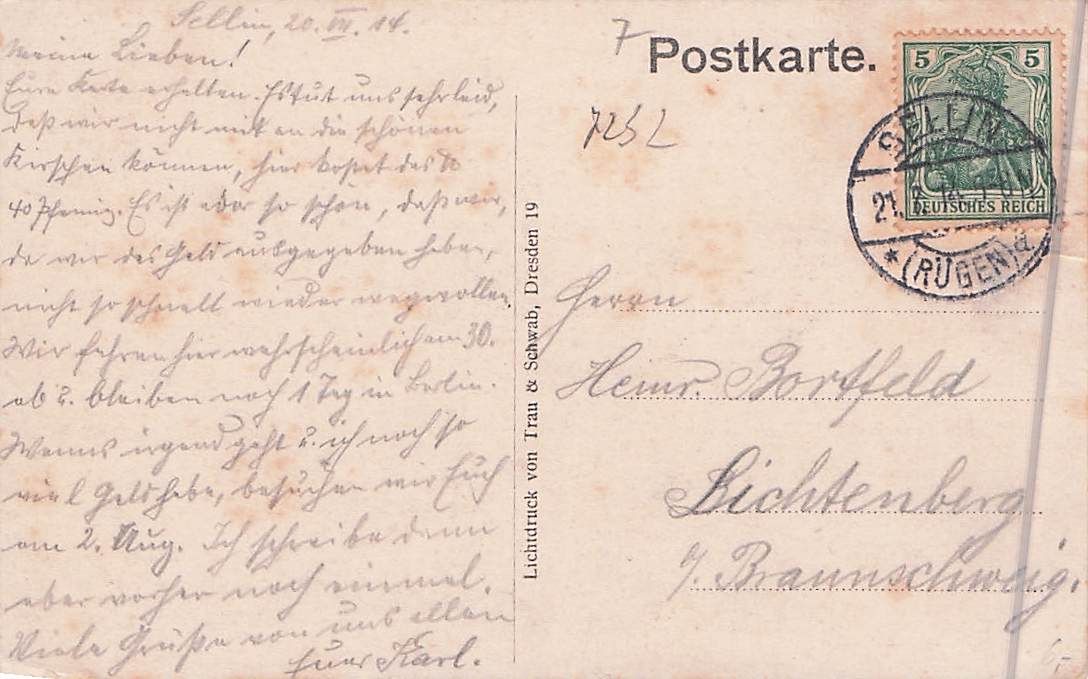 Sellin, 20. VII. 14.
Meine Lieben!
Eure Karte erhalten. Es tut uns sehr leid,
daß wir nicht mit an die schönen
Kirschen können, hier kostet das
40 Pfennig. Es ist aber so schön, daß wir,
da wir das Geld ausgegeben haben,
nicht so schnell wieder wegwollen.
Wir fahren hier wahrscheinlich am 30.
ab u. bleiben noch 1 Tag in Berlin.
Wenns irgend geht u. ich noch so
viel Geld habe, besuchen wir Euch
am 2. Aug. Ich schreibe dann
aber vorher noch einmal.
Viele Grüße von uns allen
Euer Karl.
Lichtdruck von Trau & Schwab, Dresden 19
7
Postkarte.
7252
5 5
DEUTSCHES REICH
SELLIN
21. 7. 14.
* (RÜGEN) a
Herrn
Heinr. Bortfeld
Lichtenberg
/ Braunschweig.
6,-